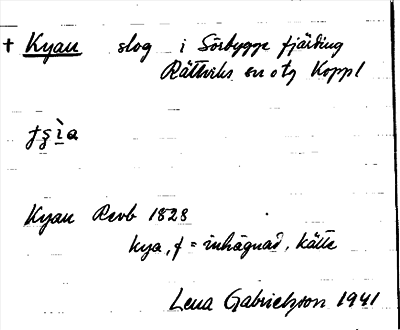 + Kyan slog i Sörbygge fjärding
Rättviks sn o tg Koppl
Kyan Revb 1828
kya, f = inhägnad, kätte
Lena Gabrielsson 1941